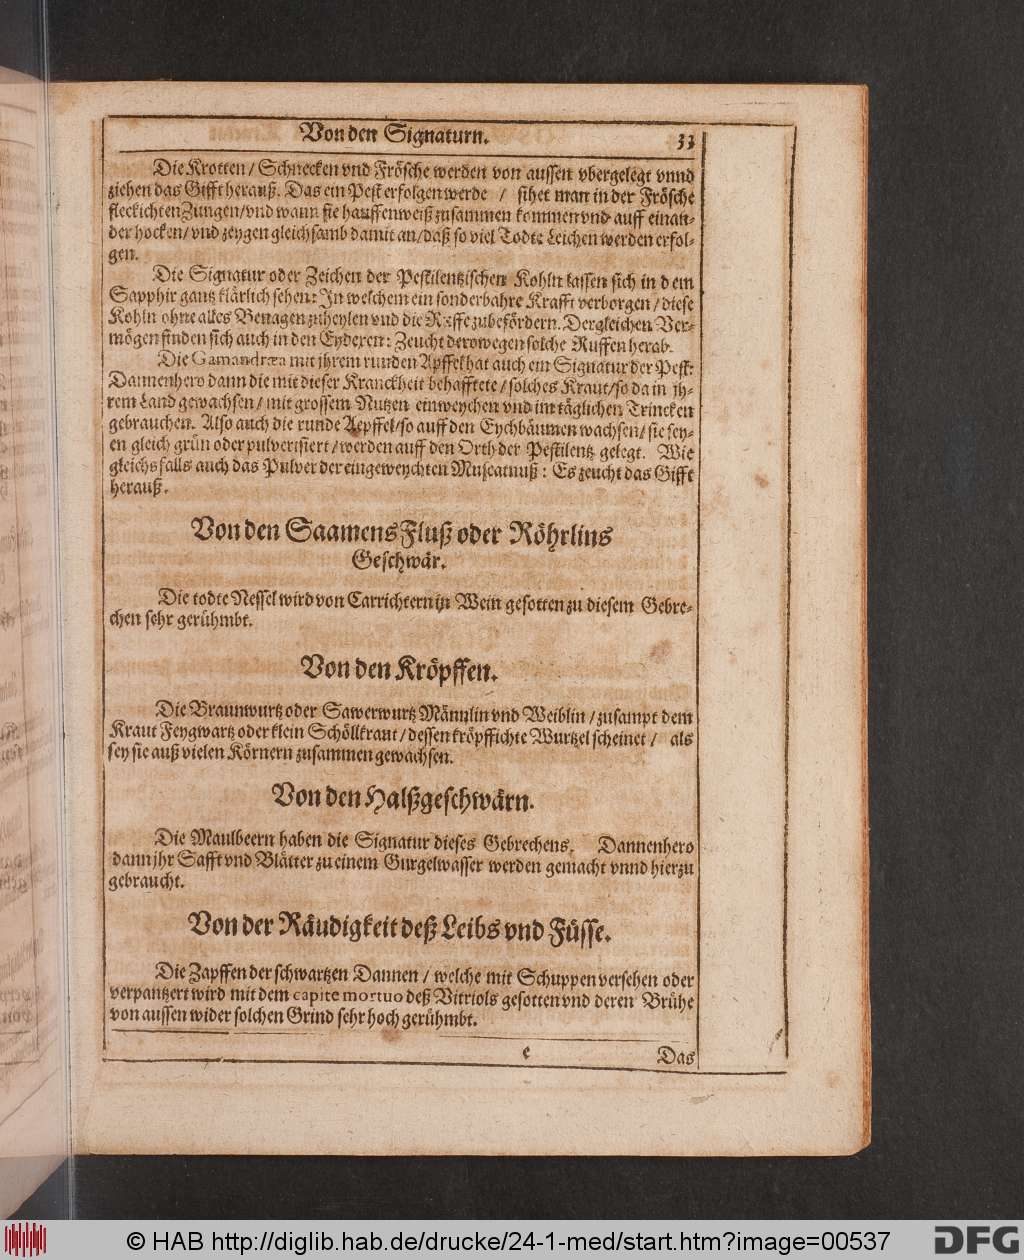 Von den Signaturn. 33
Die Krotten / Schnecken vnd Frösche werden von aussen vbergelegt vnnd
ziehen das Gifft herauß. Das ein Pest erfolgen werde / sihet man in der Frösche
fleckichten Zungen / vnd wann sie hauffenweiß zusammen kommen vnd auff einan-
der hocken / vnd zeygen gleichsamb damit an / daß so viel Todte Leichen werden erfol-
gen.
Die Signatur oder Zeichen der Pestilentzischen Kohln lassen sich in dem
Sapphir gantz klärlich sehen: In welchem ein sonderbahre Krafft verborgen / diese
Kohln ohne alles Benagen zuheylen vnd die Ruffe zubefördern. Dergleichen Ver-
mögen finden sich auch in den Eydexen: Zeucht derowegen solche Ruffen herab.
Die Gamandræa mit jhrem runden Apffel hat auch ein Signatur der Pest:
Dannenhero dann die mit dieser Kranckheit behafftete / solches Kraut / so da in jh-
rem Land gewachsen / mit grossem Nutzen einweychen vnd im täglichen Trincken
gebrauchen. Also auch die runde Aepffel / so auff den Eychbäumen wachsen / sie sey-
en gleich grün oder pulverisiert / werden auff den Orth der Pestilentz gelegt. Wie
gleichsfalls auch das Pulver der eingeweychten Mußcatnuß: Es zeucht das Gifft
herauß.
Von den Saamens Fluß oder Röhrlins
Geschwär.
Die todte Nessel wird von Carrichtern in Wein gesotten zu diesem Gebre-
chen sehr gerühmbt.
Von den Kröpffen.
Die Braunwurtz oder Sawerwurtz Männlin vnd Weiblin / zusampt dem
Kraut Feygwartz oder klein Schöllkraut / dessen kröpffichte Wurtzel scheinet / als
sey sie auß vielen Körnern zusammen gewachsen.
Von den Halßgeschwärn.
Die Maulbeern haben die Signatur dieses Gebrechens. Dannenhero
dann jhr Safft vnd Blätter zu einem Gurgelwasser werden gemacht vnnd hierzu
gebraucht.
Von der Räudigkeit deß Leibs vnd Füsse.
Die Zapffen der schwartzen Dannen / welche mit Schuppen versehen oder
verpantzert wird mit dem capite mortuo deß Vitriols gesotten vnd deren Brühe
von aussen wider solchen Grind sehr hoch gerühmbt.
e Das
© HAB http://diglib.hab.de/drucke/24-1-med/start.htm?image=00537
DFG